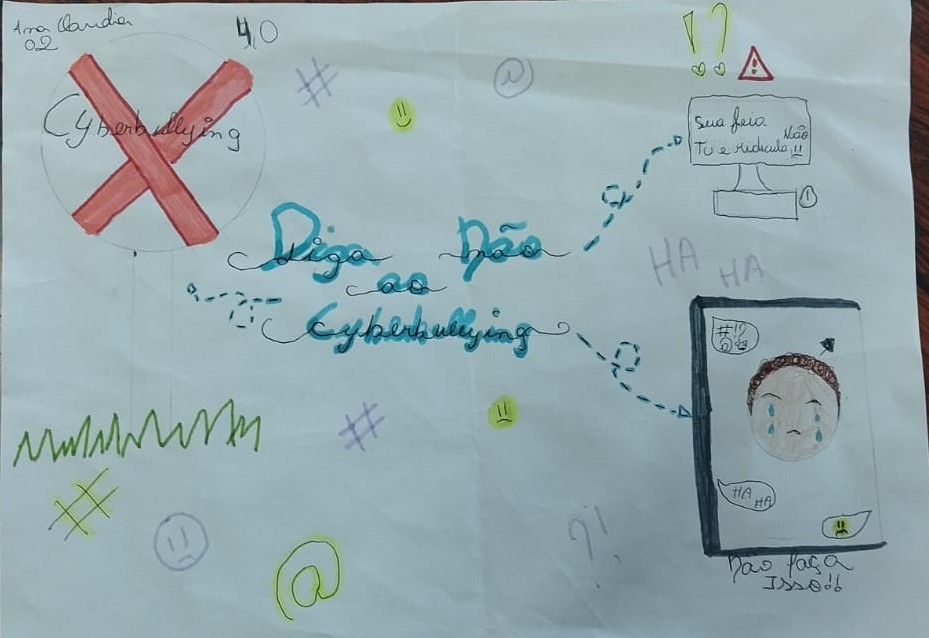 Ana Claudia
02
4,0
Cyberbullying
#
@
!?
!
Sua feia
Tu e ridicula, Não !!
!
Diga Não
ao
Cyberbullying
HA HA
#!?
@
HA
HA
Não faça
Isso!!
#
#
@
?!